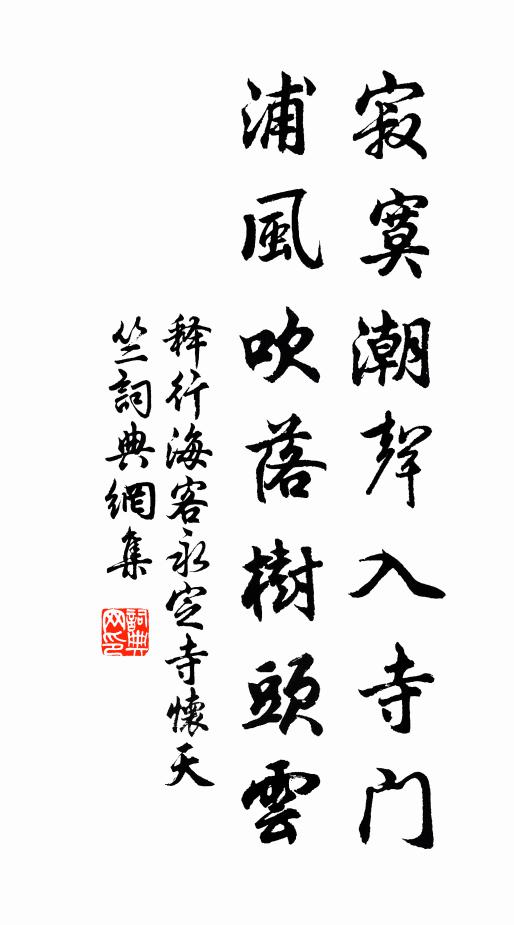 寂寞潮聲入寺門
浦風吹落樹頭雲
释行海客永定寺懷天
竺詞典網集
詞典網印